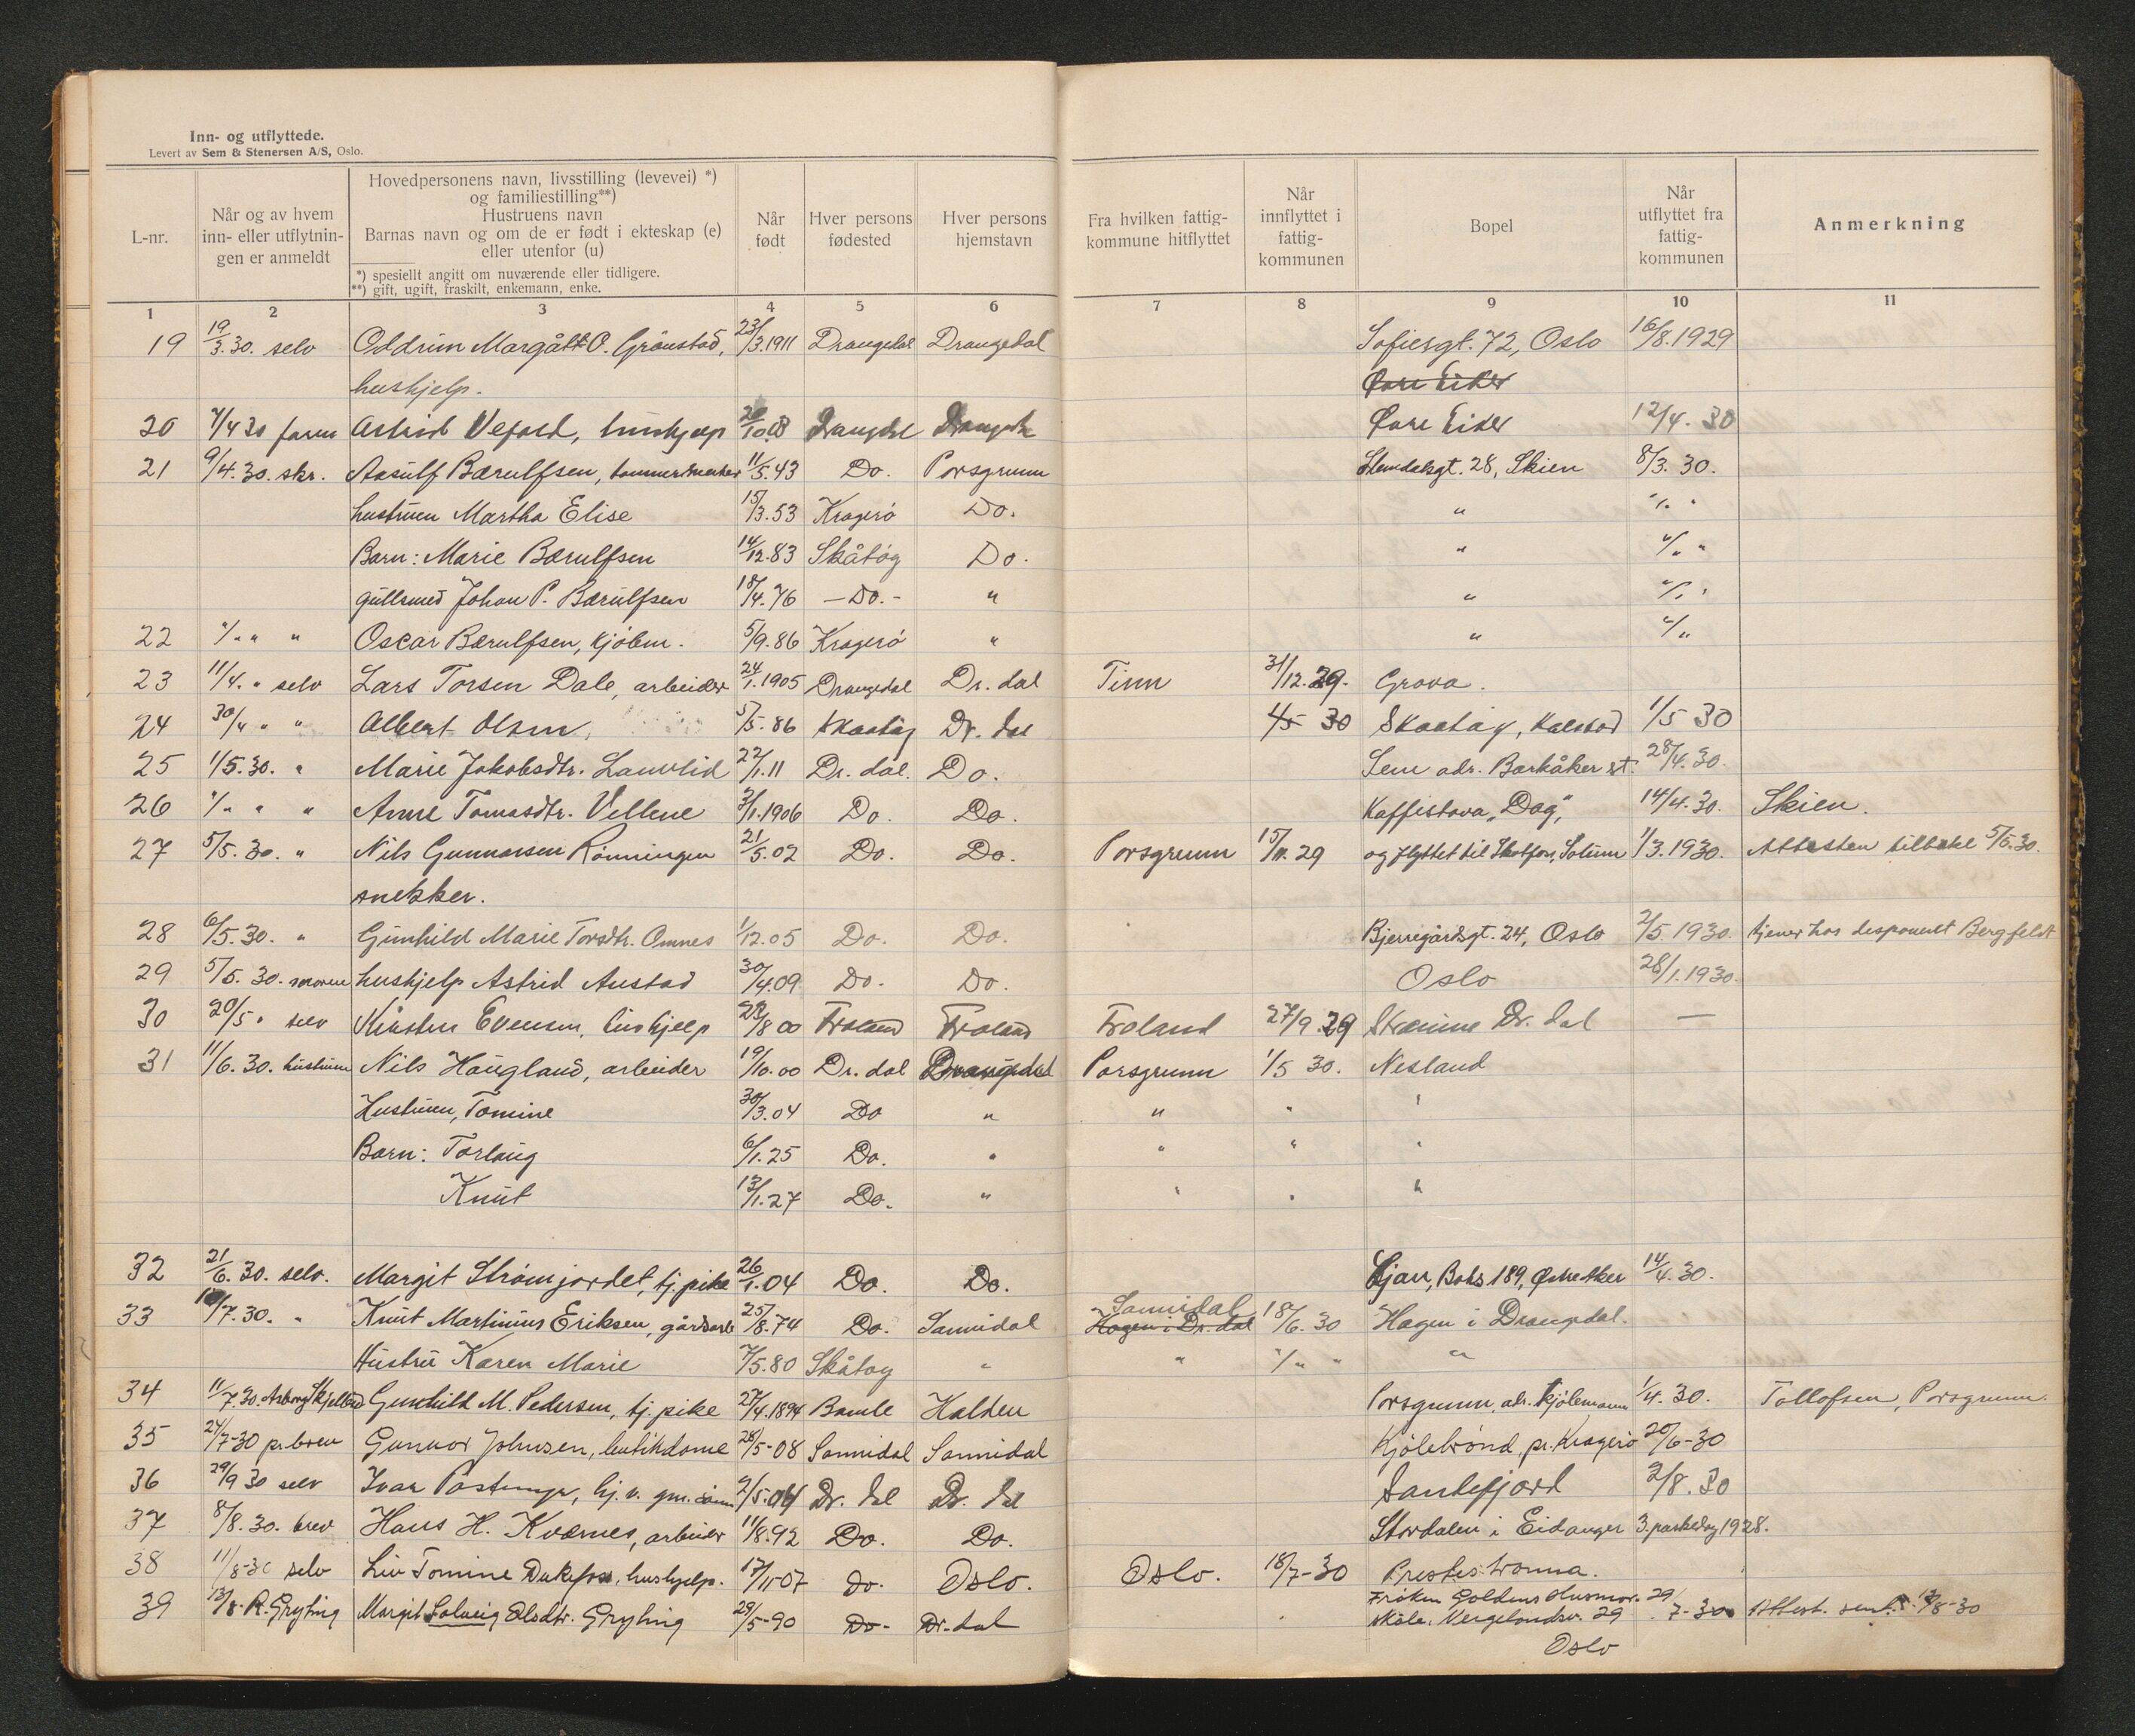 Inn- og utflyttede.
Levert av Sem & Stenersen A/S, Oslo.
L-nr.
Når og av hvem inn- eller utflytnin-gen er anmeldt
Hovedpersonens navn, livsstilling (levevei) *)
og familiestilling**)
Hustruens navn
Barnas navn og om de er født i ekteskap (e)
eller utenfor (u)
*) spesiellt angitt om nuværende eller tidligere.
**) gift, ugift, fraskilt, enkemann, enke.
Når født
Hver persons fødested
Hver persons hjemstavn
Fra hvilken fattig-kommune hitflyttet
Når innflyttet i fattig-kommunen
Bopel
Når utflyttet fra fattig-kommunen
Anmerkning
1 2 3 4 5 6 7 8 9 10 11
19 19/3.30. selv Oddrun Margått O. Grönstad, 23/3.1911 Drangedal Drangedal Sofiesgt. 72, Oslo 16/8.1929
hushjelp. Övre Eiker
20 4/30 Astrid hushjelp Drangedal Övre Eiker 12/4. 30
21 9/4.30. skr. Aasulf Bærulfsen, 11/5.43 Do. Porsgrunn 28, Skien 8/3. 30.
hustruen Martha Elise 15/3.53 Kragerö Do. "
Barn: Marie Bærulfsen 14/12.83 Skåtöy Do. "
gullsmed Johan P. Bærulfsen 18/4.76 - Do. - " "
22 " " Oscar Bærulfsen, kjöbm. 5/9.86 Kragerö " "
23 11/4. " selv Lars Torsen Dale, arbeider 24/1.1905 Drangedal Dr. dal Tinn 31/12.29. Grova.
24 30/4 " " Albert Olsen, 5/5.86 Skaatöy Dr. dal 1/5 30 Skaatöy, Kalstad 1/5 30
25 1/5.30. " Marie Jakobsdtr. 22/1.11 Dr. dal. Do. Sem adr. Barkåker st. 28/4.30.
26 " " " Anne Tomasdtr. Vellene 3/1.1906 Do. Do. Kaffistova „Dag", 14/4.30. Skien.
27 5/5.30. " Nils Gunnarsen Rönningen 21/5.02 Do. Do. Porsgrunn 15/11.29 og flyttet til Skotfos, Solum 1/3.1930. Attesten tilbake 5/5.30.
snekker.
28 6/5.30. " Gunhild Marie Torsdtr. Omnes 1/12.05 Do. Do. Bjerregårdsgt. 24, Oslo 2/5.1930. tjener hos disponent Bergfeldt
29 5/5.30. moren hushjelp Astrid Austad 30/4.09 Do. Do. Oslo 28/1.1930.
30 20/5 " selv Evensen, hushjelp 28/8 00 Froland Froland Froland 27/9.29 Dr. dal —
31 11/6.30. hustruen Nils Haugland, arbeider 19/10.00 Dr. dal Drangedal Porsgrunn 1/5 30. Nesland
Hustruen, Tomine 30/3.04 Do " " " "
Barn: Torlaug 6/1.25 Do. " " " "
Knut 13/1.27 Do. " " " "
32 21/6.30. selv. Margit Strömjordet, tj. pike 26/1.04 Do. Do. Ljan, Boks 189, Östre Aker 14/4.30.
Sannidal
33 10/7.30. " Knut Martinius Eriksen, gårdarb 25/8.74 Do. Sannidal Hagen i Dr. dal 18/6.30 Hagen i Drangedal.
Hustru Karen Marie 7/5.80 Skåtöy " " " " "
34 11/7.30. Gunhild M. Pedersen, tj. pike 27/4.1894 Bamle Halden Porsgrunn, adr. kjölemann 1/4.30. Tollofsen, Porsgrunn.
35 24/7-30 pr. brev Gunvor Johnsen, butikdame 28/5-08 Sannidal Sannidal Kjölebrönd, pr. Kragerö 20/6-30
36 29/9 30 selv Ivar 2/5.04 Dr. dal Dr. dal Sandefjord 2/8.30
37 8/8.30. brev Hans H. Kværnes, arbeider 11/8.92 Do. Do. Stordalen i Eidanger 3. påskedag 1928.
38 11/8-30 selv Liv Tomine Dukefoss, hushjelp. 17/11-07 do. Oslo. Oslo. 18/7-30 Prestestranna.
39 13/8- R. Gryting Margit Solveig Olsdtr. Gryting 29/5-90 Do- Dr. dal Fröken Goldens Husmor-
skole. Vergelandsv. 29 29/7-30 Attest. sendt 13/8-30
Oslo